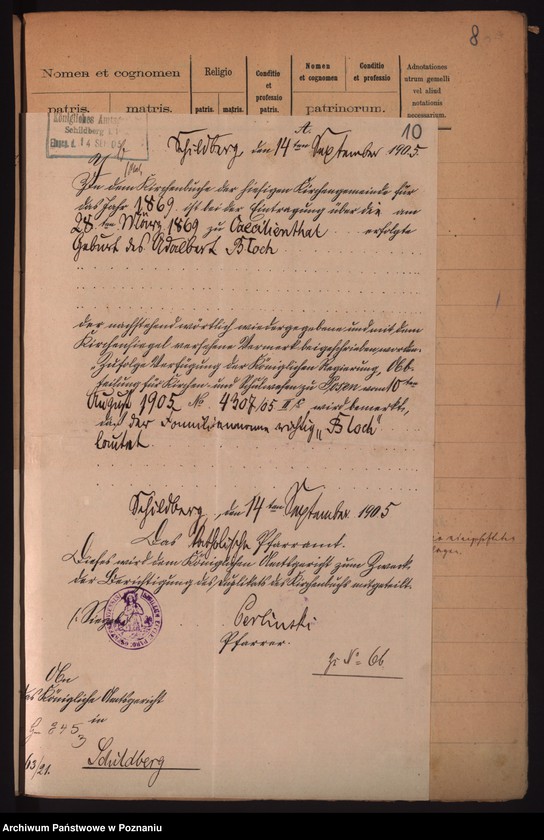 8
Nomen et cognomen
Religio
Conditio et professio patris
Nomen et cognomen
Conditio et professio
Adnotationes utrum gemelli vel aliud notationis necessarium.
patris.
matris.
patris.
matris.
patrinorum.
Königliches Amtsg
Schildberg
Eing. d. 14 SEP 05
A.
10
Schildberg, den 14ten September 1905.
In dem Kirchenbuche der hiesigen Kirchengemeinde für
das Jahr 1869 ist bei der Eintragung über die am
28ten März 1869 zu Caecilienthal erfolgte
Geburt des Adalbert Bloch
der nachstehend wörtlich wiedergegebene und mit dem
Kirchensiegel versehene Vermerk beigeschrieben worden:
"Zufolge Verfügung der Königlichen Regierung, Ab-
teilung für Kirchen- und Schulwesen zu Posen vom 10ten
August 1905 No 4307/05 II
wird bemerkt,
daß der Familienname richtig "Bloch"
lautet.
Schildberg, den 14ten September 1905
Das Katholische Pfarramt.
Dieses wird dem Königlichen Amtsgericht zum Zweck
der Berichtigung des Duplikats des Kirchenbuchs mitgeteilt.
(Siegel)
Perlinski
Pfarrer.
No 66
An
das Königliche Amtsgericht
in
Schildberg
Archiwum Państwowe w Poznaniu